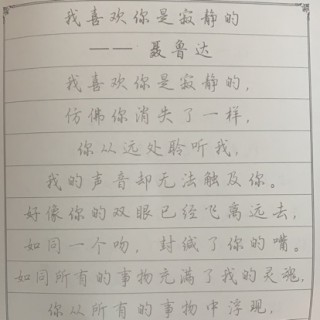 我喜欢你是寂静的
—— 聂鲁达
我喜欢你是寂静的,
仿佛你消失了一样,
你从远处聆听我,
我的声音却无法触及你。
好像你的双眼已经飞离远去,
如同一个吻,封缄了你的嘴。
如同所有的事物充满了我的灵魂,
你从所有的事物中浮现,